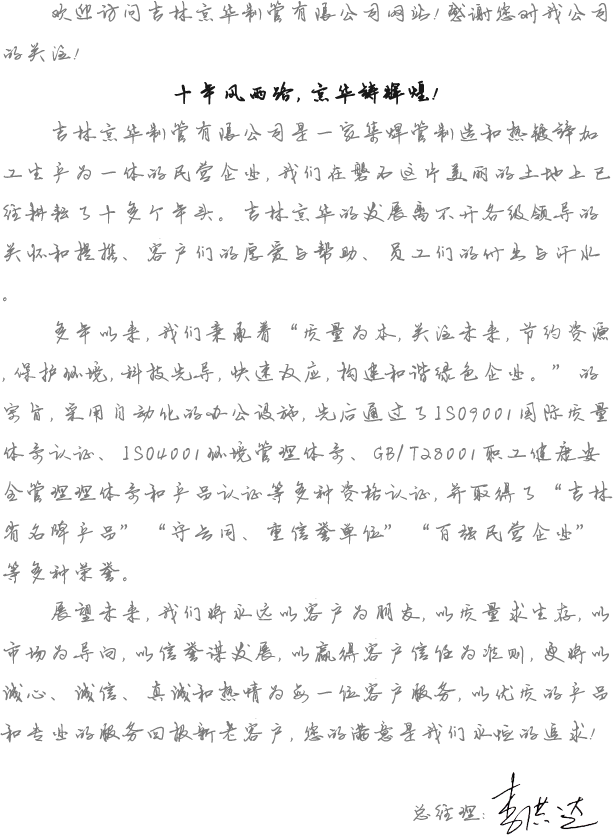 欢迎访问吉林京华制管有限公司网站!感谢您对我公司
的关注!
十年风雨路,京华铸辉煌!
吉林京华制管有限公司是一家集焊管制造和热镀锌加
工生产为一体的民营企业,我们在磐石这片美丽的土地上已
经耕耘了十多个年头。吉林京华的发展离不开各级领导的
关怀和提携、客户们的厚爱与帮助、员工们的付出与汗水
。
多年以来,我们秉承着“质量为本,关注未来,节约资源
,保护环境,科技先导,快速反应,构建和谐绿色企业。”的
宗旨,采用自动化的办公设施,先后通过了ISO9001国际质量
体系认证、ISO4001环境管理体系、GB/T28001职工健康安
全管理理体系和产品认证等多种资格认证,并取得了“吉林
省名牌产品”“守合同、重信誉单位”“百强民营企业”
等多种荣誉。
展望未来,我们将永远以客户为朋友,以质量求生存,以
市场为导向,以信誉谋发展,以赢得客户信任为准则,更将以
诚心、诚信、真诚和热情为每一位客户服务,以优质的产品
和专业的服务回报新老客户,您的满意是我们永恒的追求!
总经理:李洪达